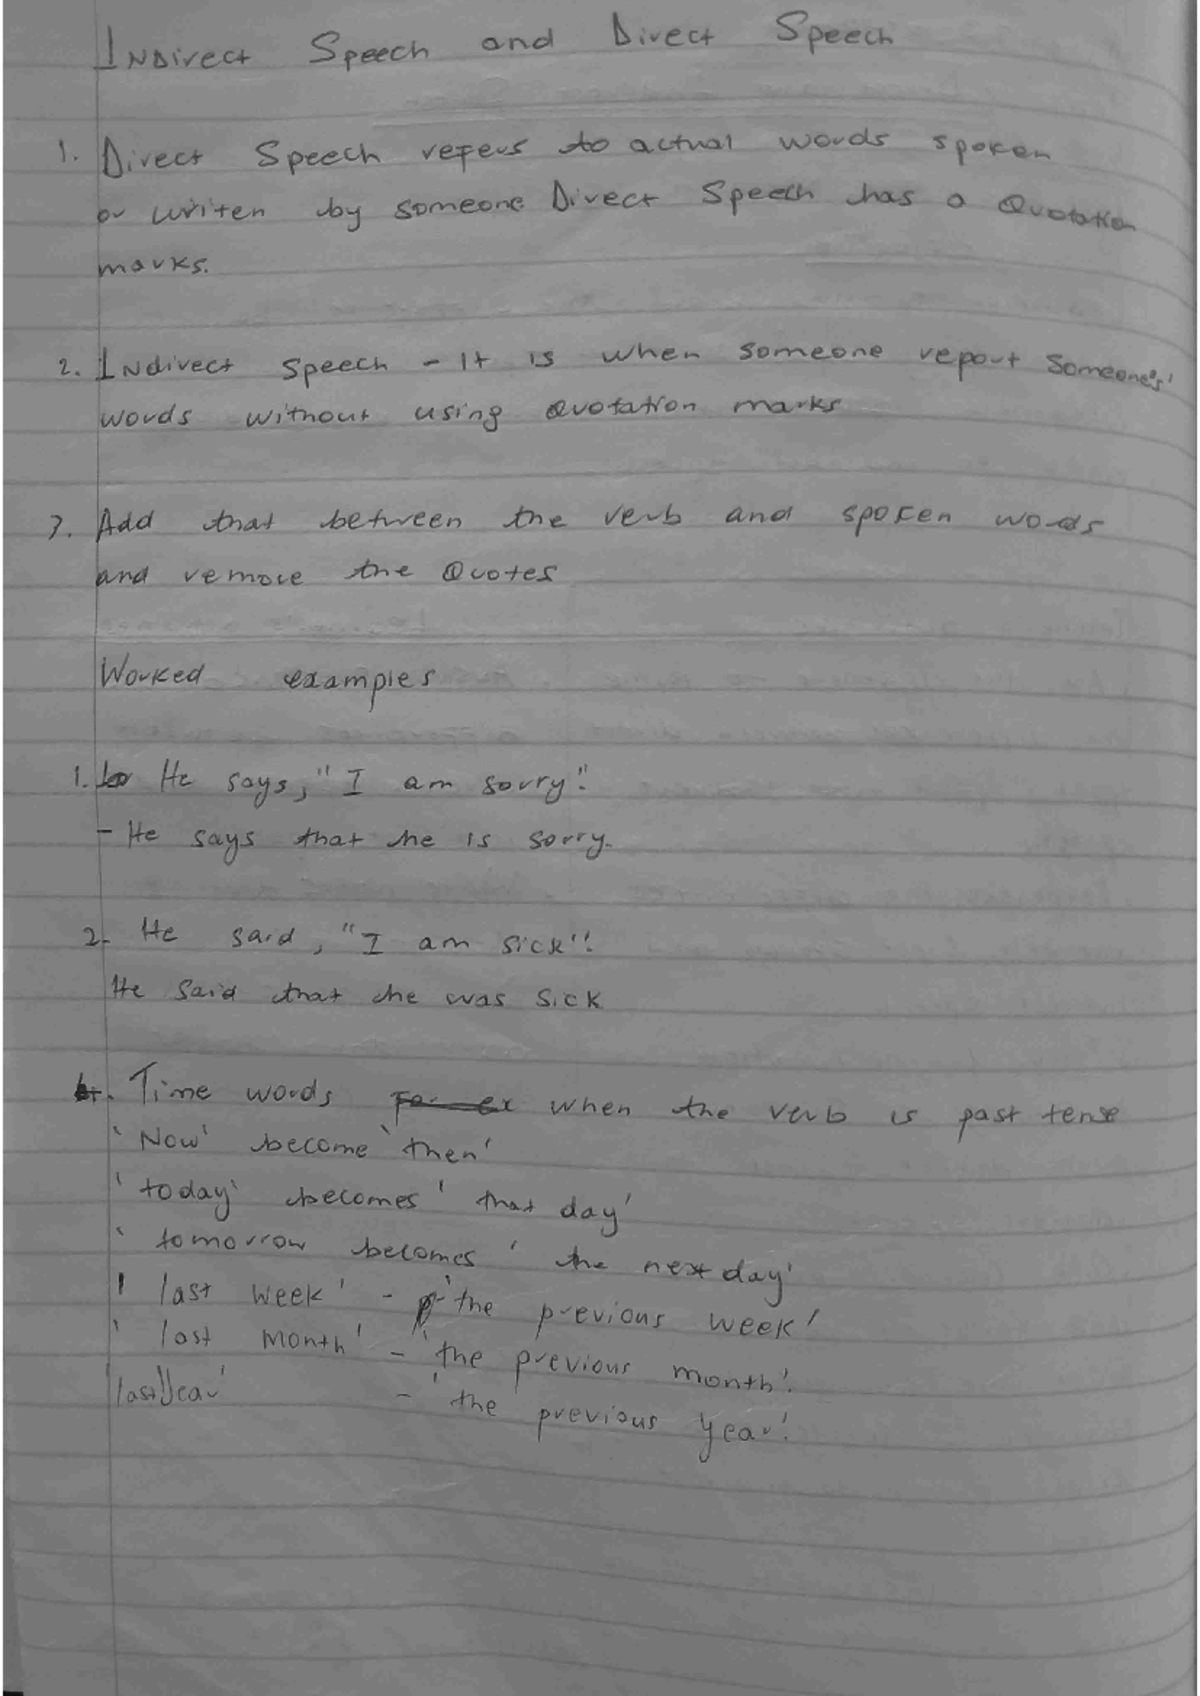 Indirect Speech and Direct Speech
1. Direct Speech refers to actual words spoken
or writen by someone Direct Speech has a Quotation
marks.
2. Indirect speech - It is when someone report someone's'
words without using Quotation marks
3. Add that between the verb and spoken words
and remove the Quotes
Worked examples
1. He says, "I am sorry".
- He says that he is sorry.
2. He said, "I am sick".
He said that he was sick
4. Time words when the verb is past tense
'Now' become 'then'
'today' becomes 'that day'
' tomorrow becomes ' the next day'
' last week' - 'the previous week'
' last month' - 'the previous month'.
'last year' - 'the previous year'.